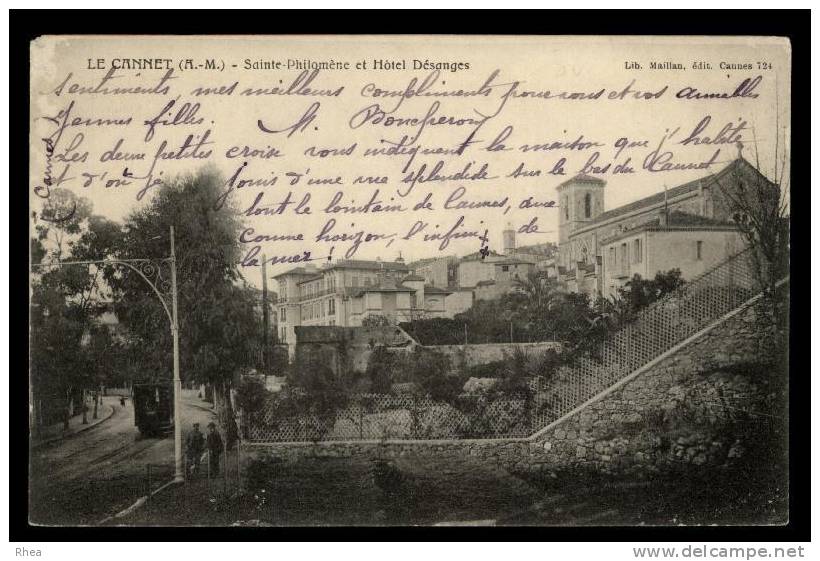 LE CANNET (A.-M.) - Sainte-Philomène et Hôtel Désanges
Lib. Maillan, édit. Cannes 724
sentiments, mes meilleurs compliments pour vous et vos aimables
jeunes filles. M.
Les deux petites croix vous indiquent la maison que j'habite
et d'où je jouis d'une vue splendide sur le bas du Cannet
tout le lointain de Cannes, avec
comme horizon, l'infini de
la mer
Cannes
Rhea
www.delcampe.net